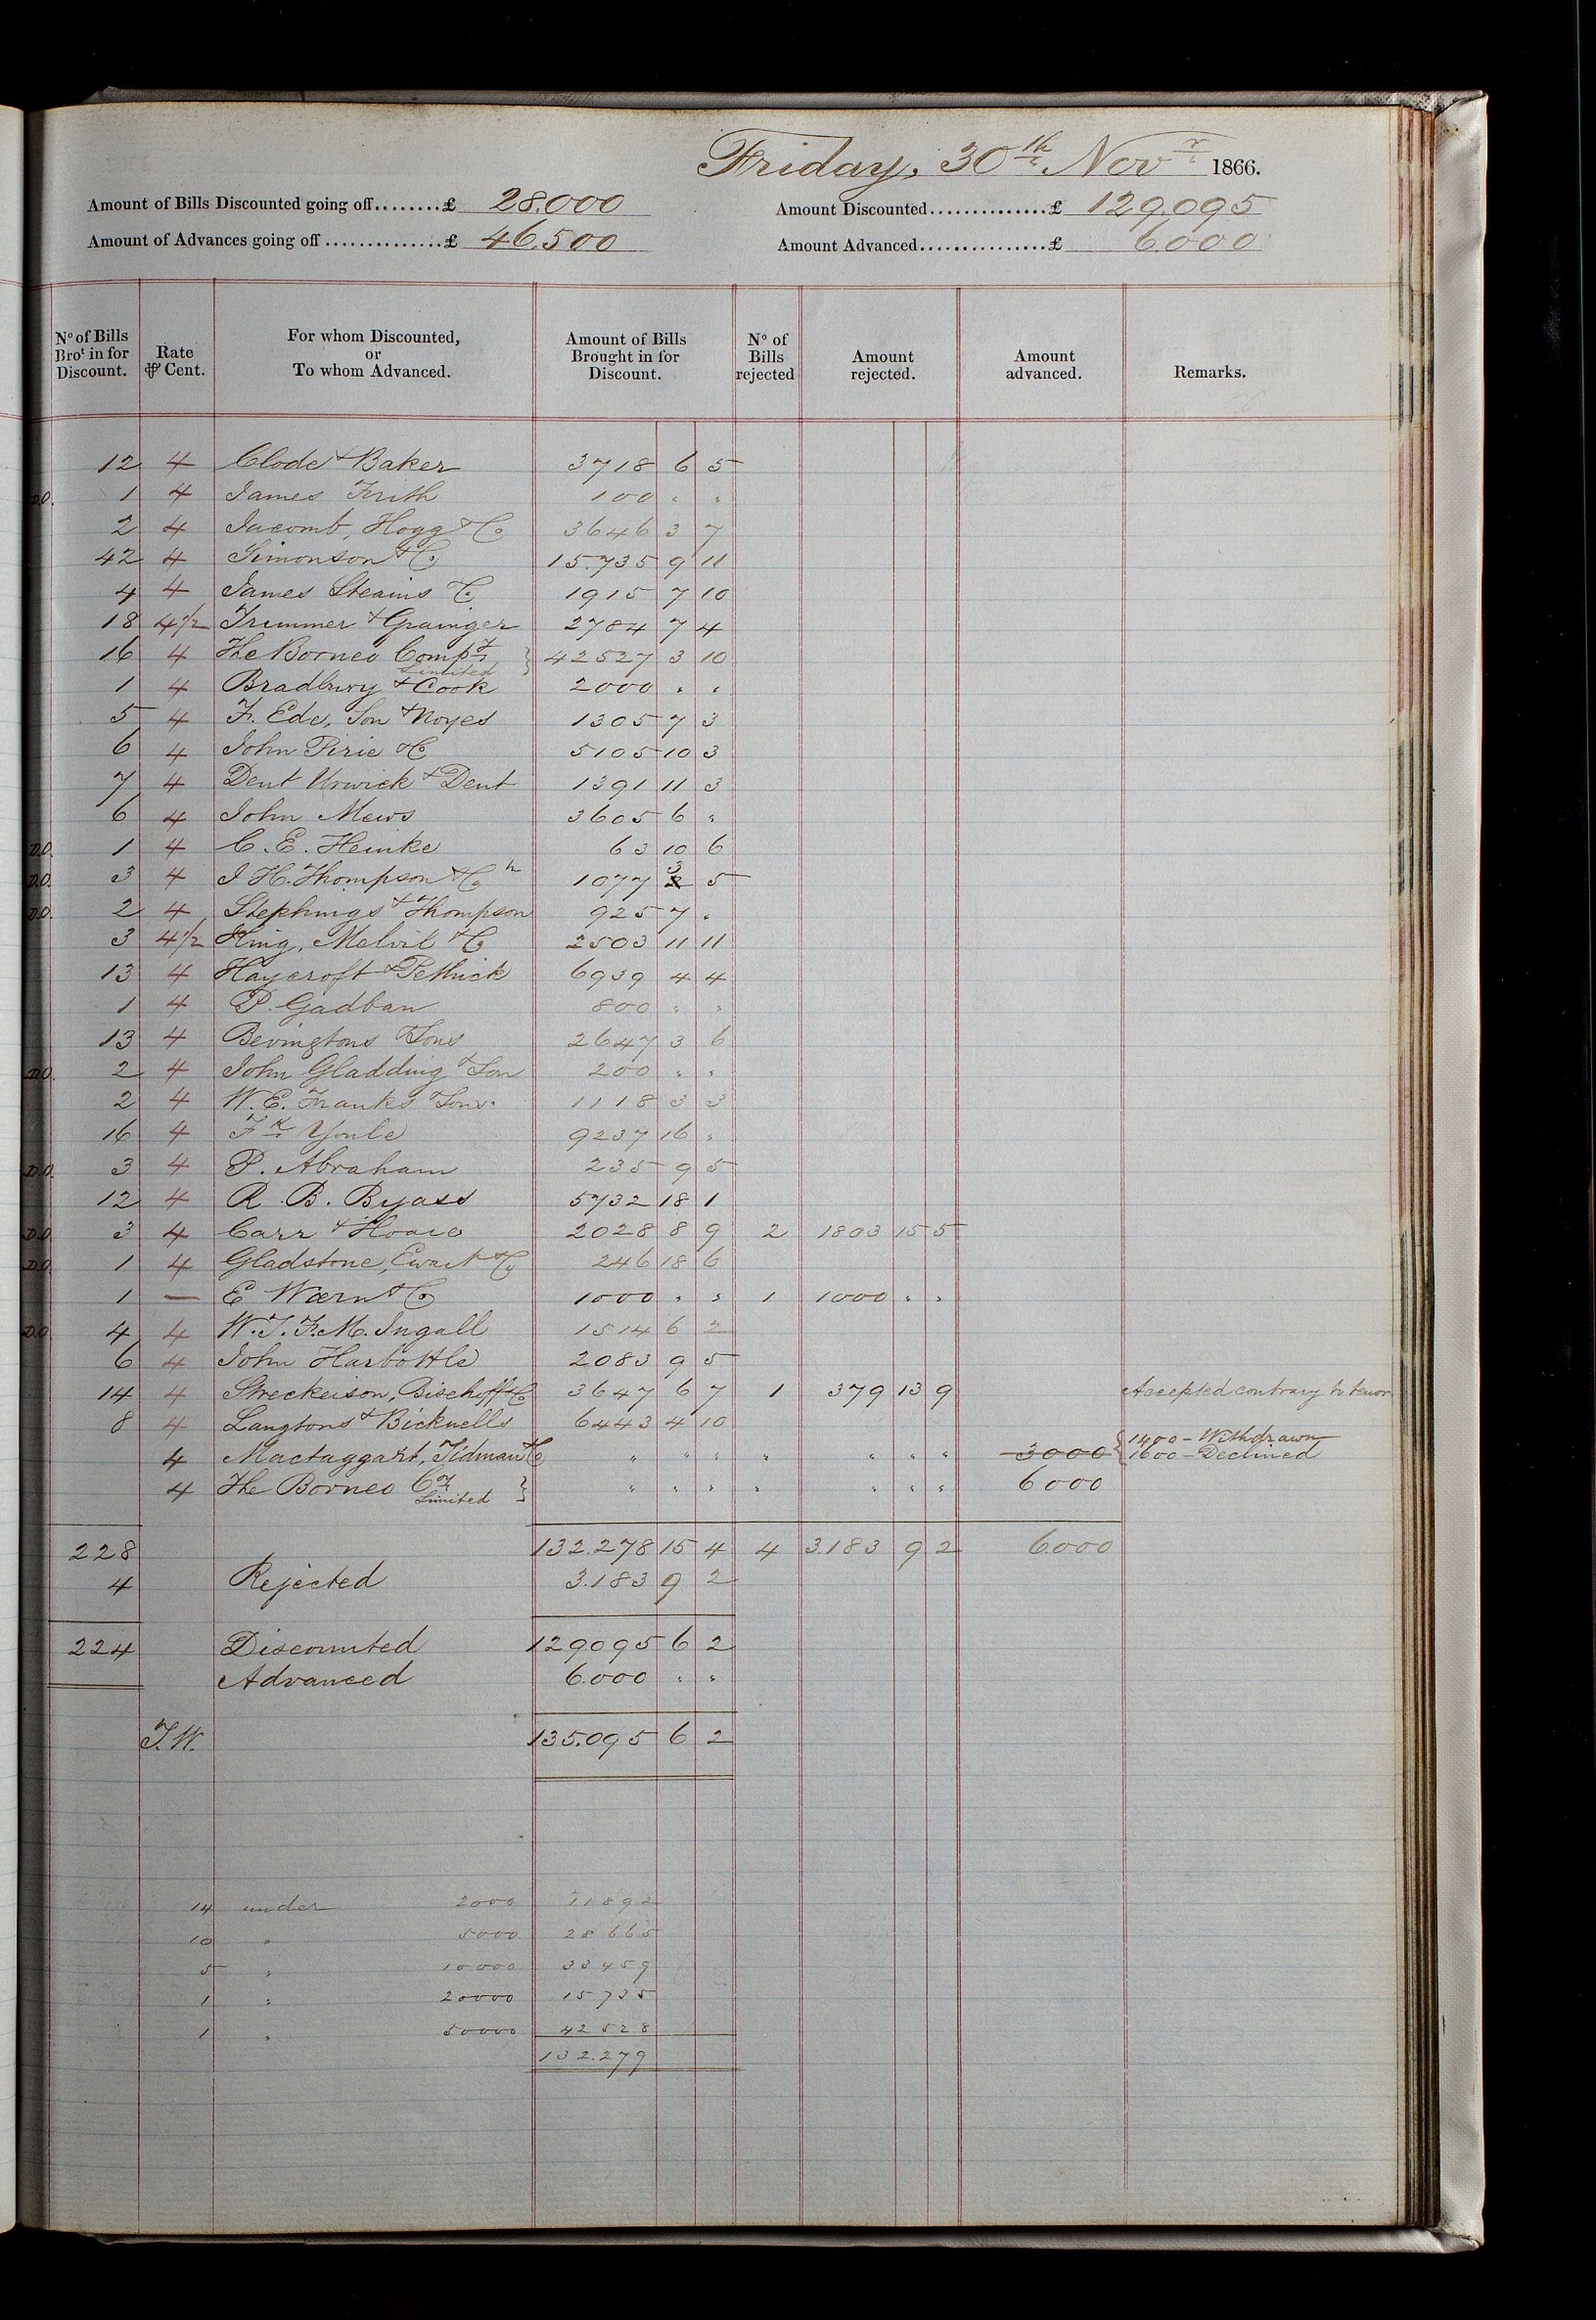 Friday, 30th Novr 1866.
Amount of Bills Discounted going off........£ 28.000 Amount Discounted..............£ 129.095
Amount of Advances going off...............£ 46.500 Amount Advanced...............£ 6.000
No of Bills Brot in for Discount. Rate ⅌ Cent. For whom Discounted, or To whom Advanced. Amount of Bills Brought in for Discount. No of Bills rejected Amount rejected. Amount advanced. Remarks.
12 4 Clode & Baker 3718 6 5
D.O. 1 4 James Frith 100 " "
2 4 Jacomb, Hogg & Co 3646 3 7
42 4 Simonson & Co 15.735 9 11
4 4 James Steains & Co 1915 7 10
18 4½ Trimmer & Grainger 2784 7 4
16 4 The Borneo Compy Limited } 42527 3 10
1 4 Bradbury & Cook 2000 " "
5 4 F. Ede, Son & Noyes 1305 7 3
6 4 John Pirie & Co 5105 10 3
7 4 Dent Urwick & Dent 1391 11 3
6 4 John Mews 3605 6 "
D.O. 1 4 C. E. Heinke 63 10 6
D.O. 3 4 J H. Thompson & Co 1077 3 5
D.O. 2 4 Stephings & Thompson 925 7 "
3 4½ King, Melvil & Co 2503 11 11
13 4 Haycroft & Pethick 6939 4 4
1 4 P. Gadban 800 " "
13 4 Bevingtons & Sons 2647 3 6
D.O. 2 4 John Gladding & Son 200 " "
2 4 W. E. Franks Sons 1118 3 3
16 4 Fk Youle 9237 16 "
D.O. 3 4 P. Abraham 235 9 5
12 4 R. B. Byass 5732 18 1
D.O. 3 4 Carr & Hoare 2028 8 9 2 1803 15 5
D.O. 1 4 Gladstone, Ewart & Co 246 18 6
1 — E Wærn & Co 1000 " " 1 1000 " "
D.O. 4 4 W. T. F. M. Ingall 1514 6 2
6 4 John Harbottle 2083 9 5
14 4 Streckeison, Bischoff & Co 3647 6 7 1 379 13 9 Accepted contrary to tenor
8 4 Langtons & Bicknells 6443 4 10
4 Mactaggart, Tidman & Co " " " " " " " 3000 { 1400 – Withdrawn
1600 – Declined
4 The Borneo Cy Limited } " " " " " " " 6000
228 132.278 15 4 4 3.183 9 2 6.000
4 Rejected 3.183 9 2
224 Discounted 129.095 6 2
Advanced 6.000 " "
T.W. 135.095 6 2
14 under 2000 11892
10 " 5000 28665
5 " 10000 33459
1 " 20000 15735
1 " 50000 42528
132.279